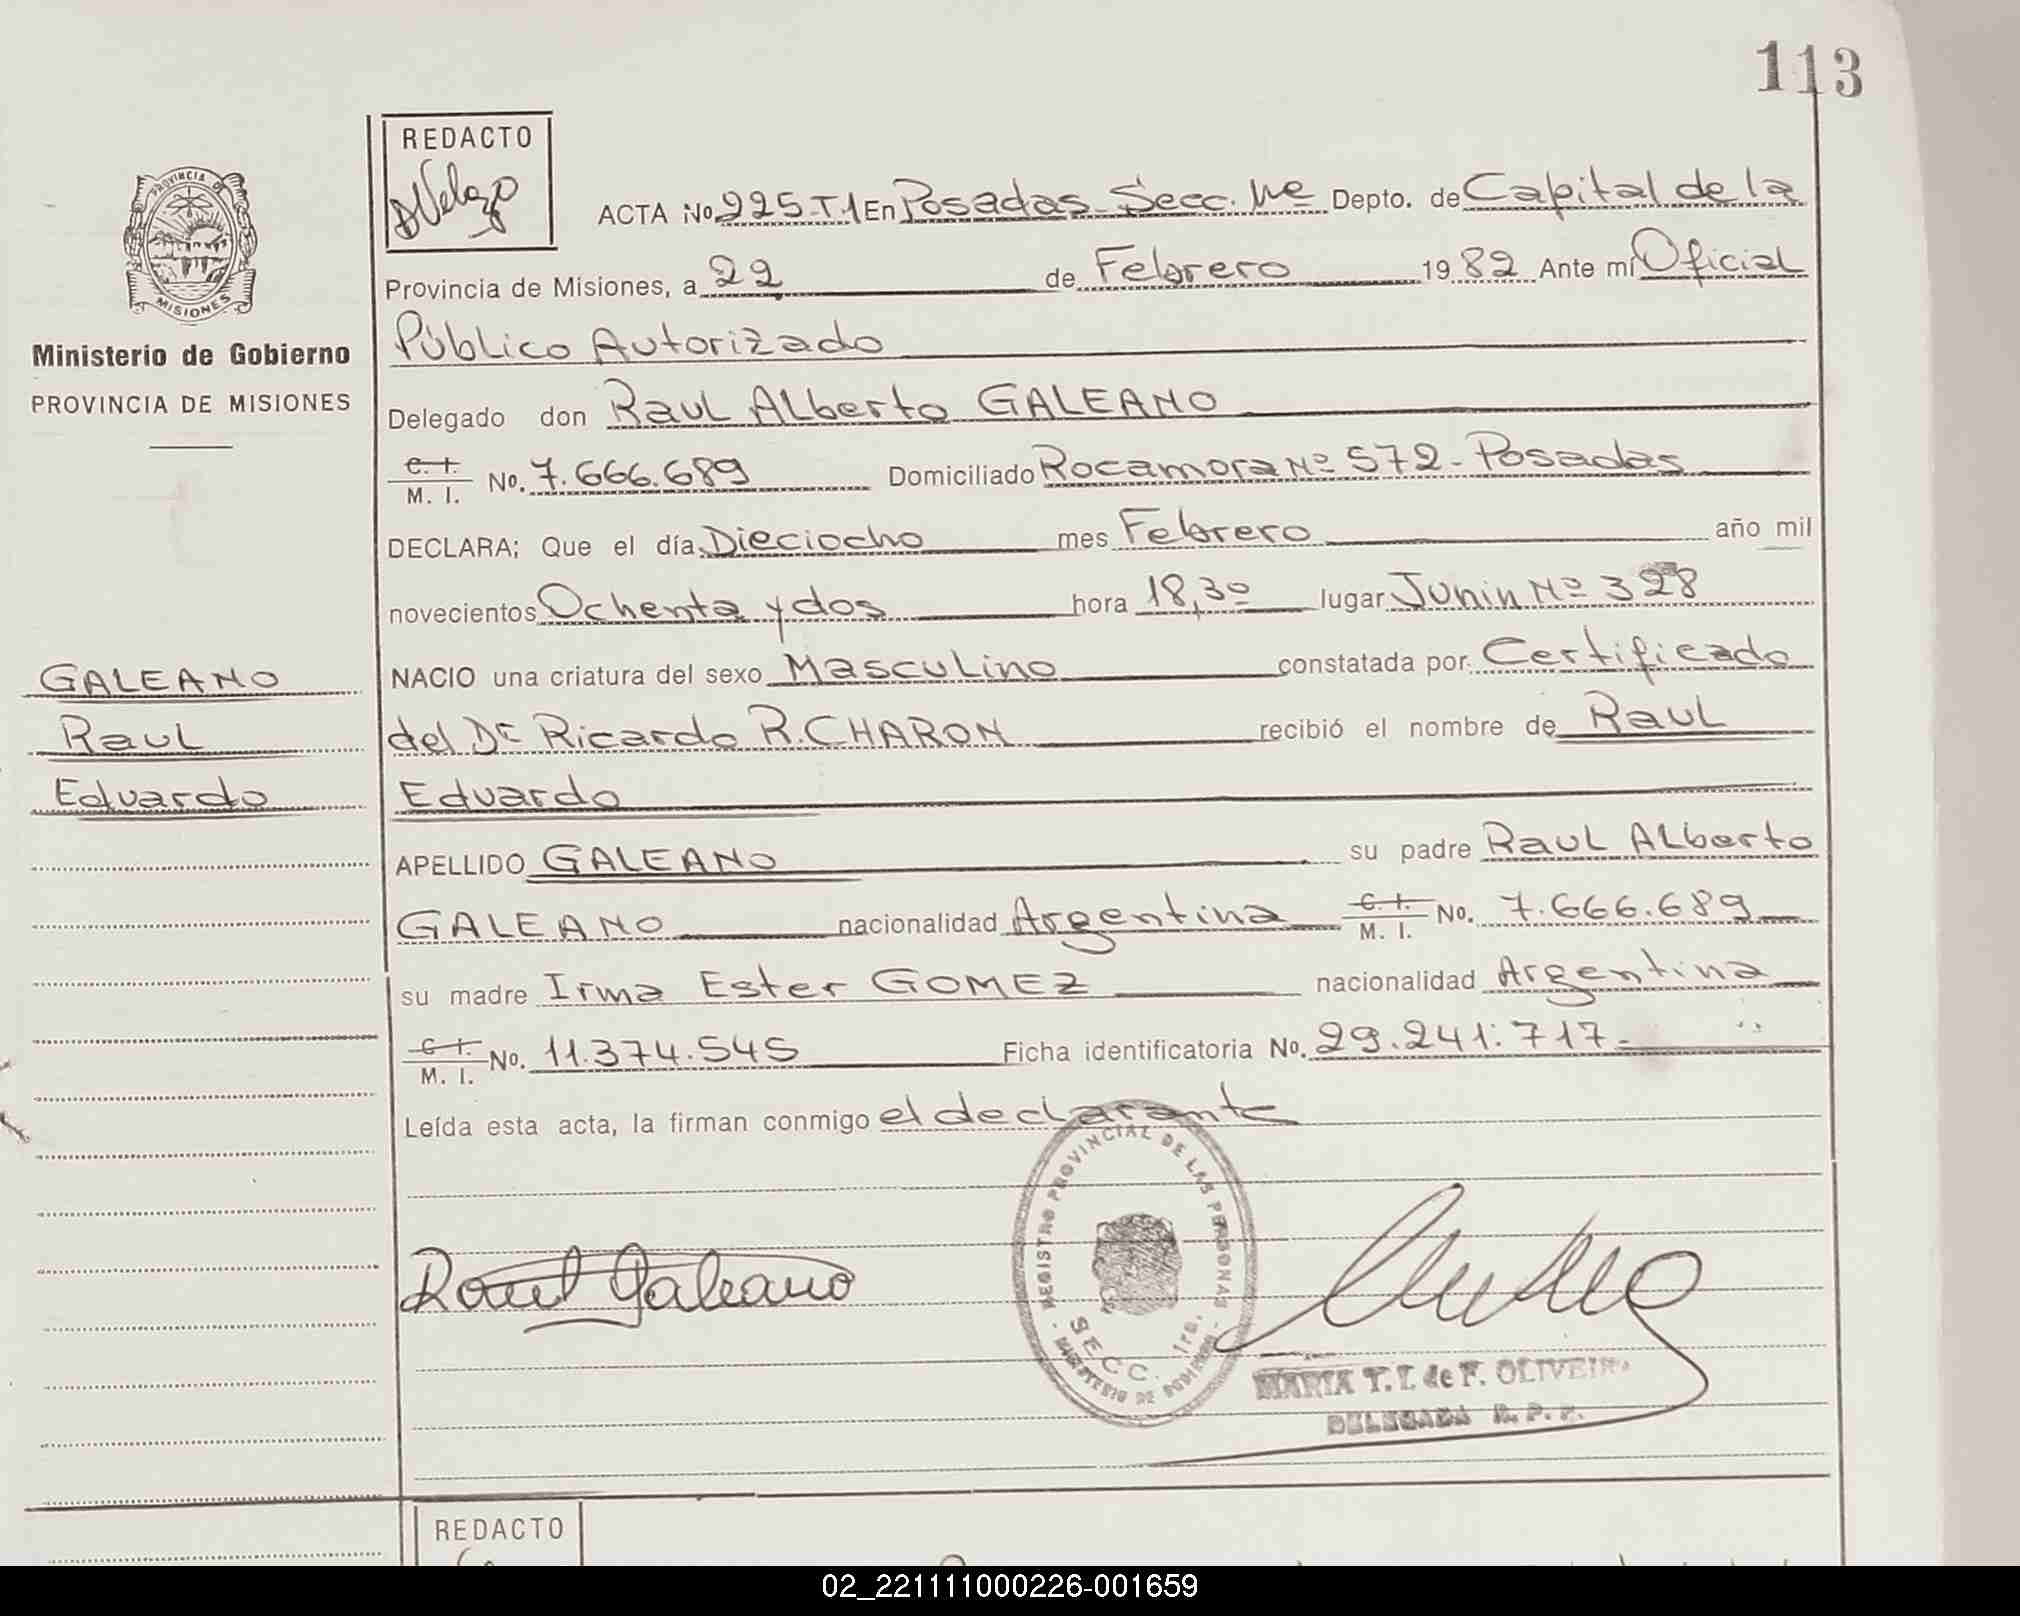 113
REDACTO
PROVINCIA DE
MISIONES
ACTA No 225-T.1 En Posadas Secc. 1ra Depto. de Capital de la
Provincia de Misiones, a 22 de Febrero 1982 Ante mí Oficial
Ministerio de Gobierno
PROVINCIA DE MISIONES
Público Autorizado
Delegado don Raul Alberto GALEANO
C. I.
M. I. No. 7.666.689 Domiciliado Rocamora Nº 572 - Posadas
DECLARA; Que el día Dieciocho mes Febrero año mil
novecientos Ochenta y dos hora 18,30 lugar Junin Nº 328
GALEANO
Raul
Eduardo
NACIO una criatura del sexo Masculino constatada por Certificado
del Dr Ricardo R. CHARON recibió el nombre de Raul
Eduardo
APELLIDO GALEANO su padre Raul Alberto
GALEANO nacionalidad Argentina C. I. M. I. No. 7.666.689
su madre Irma Ester GOMEZ nacionalidad Argentina
C. I.
M. I. No. 11.374.545 Ficha identificatoria No. 29.241.717.-
Leída esta acta, la firman conmigo el declarante
REGISTRO PROVINCIAL DE LAS PERSONAS
SECC. 1ra.
MINISTERIO DE GOBIERNO
Raul Galeano
MARIA T. I. de F. OLIVEIRA
DELEGADA R. P. P.
REDACTO
02_221111000226-001659